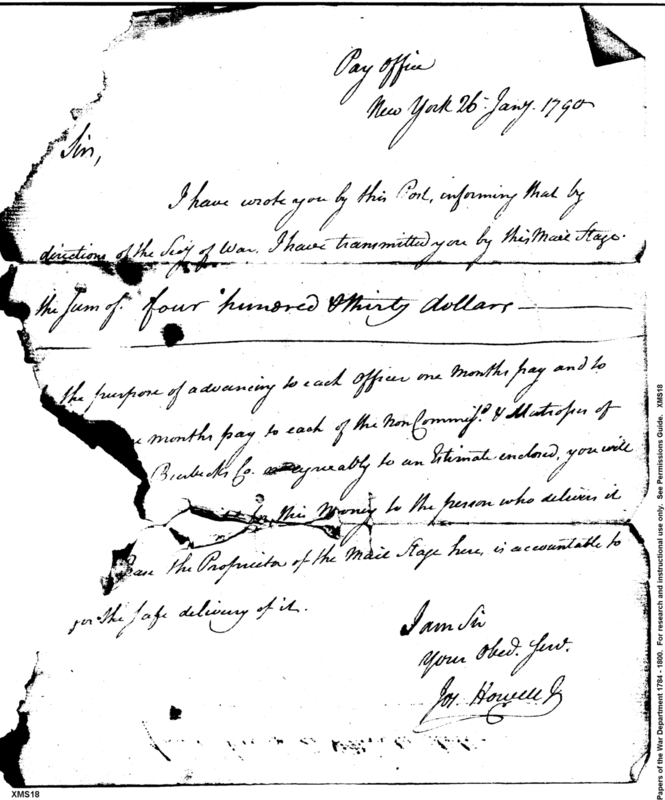 Pay Office
New York 26 Jany. 1790
Sir,
I have wrote you by this Post, informing that by
directions of the Secy of War. I have transmitted you by this Mail Stage.
the Sum of four hundred & thirty dollars
the purpose of advancing to each Officer one months pay and to
months pay to each of the Non Commisd. & Matrosses of
Burbecks Co. agreeably to an Estimate enclosed, you will
for this Money to the person who delivers it
the Proprietor of the Mail Stage here, is accountable to
for the safe delivery of it.
I am Sir
Your Obed. Servt.
Jos. Howell Jr
XMS18
Papers of the War Department 1784 - 1800. For research and instructional use only. See Permissions Guide. XMS18